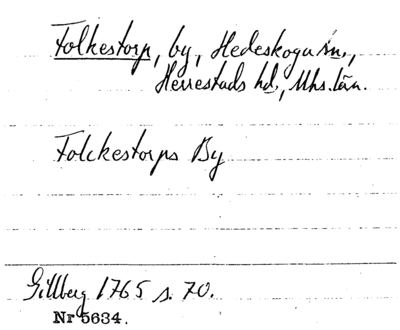 Folkestorp, by, Hedeskoga sn.,
Herrestads hd., Mhs. län.
Folckestorps By
Gillberg 1765 s. 70.
Nr 5634.